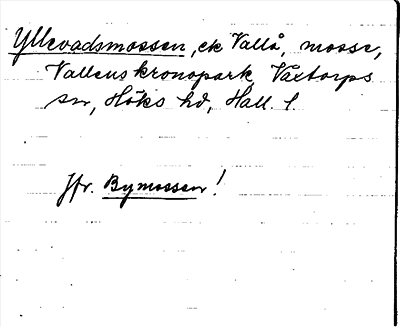 Yllevadsmossen, ek Vallå, mosse,
Vallens kronopark Växtorps
sn, Höks hd, Hall. l
Jfr. Bymossen!